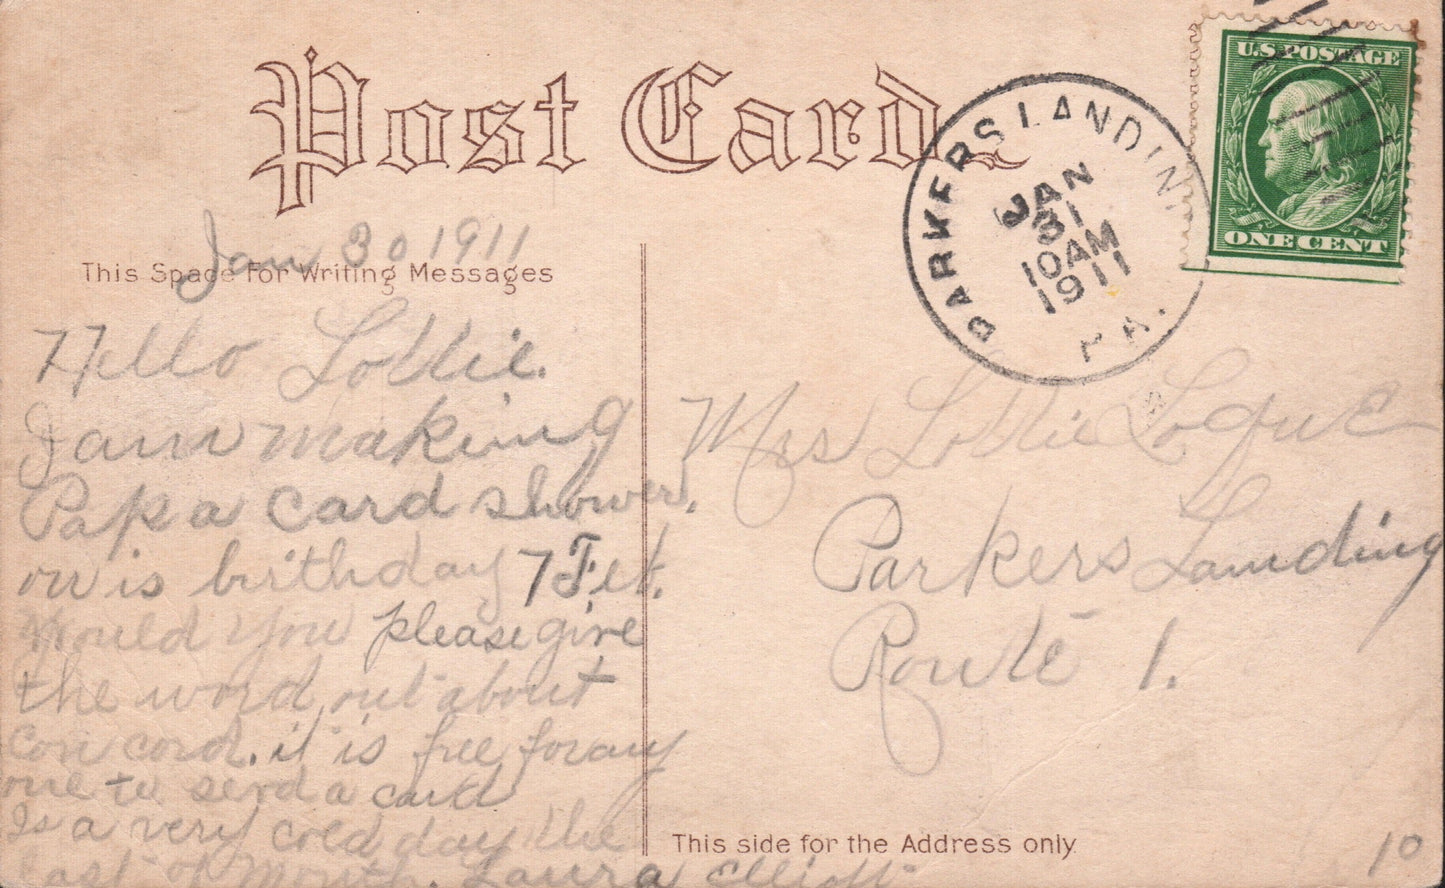 Post Card
U.S. POSTAGE
ONE CENT
PARKERS LANDIN
JAN
31
10AM
1911
PA.
Jan 30 1911
This Space For Writing Messages
Hello Lottie.
I am making
Papa a card shower.
on is birthday 7 Feb.
Would you please give
the word out about
Concord. it is free for any
one to send a card
Is a very cold day the
last of Month. Laura Elliott
Mrs Lottie Logue
Parkers Landing
Route 1.
This side for the Address only
10